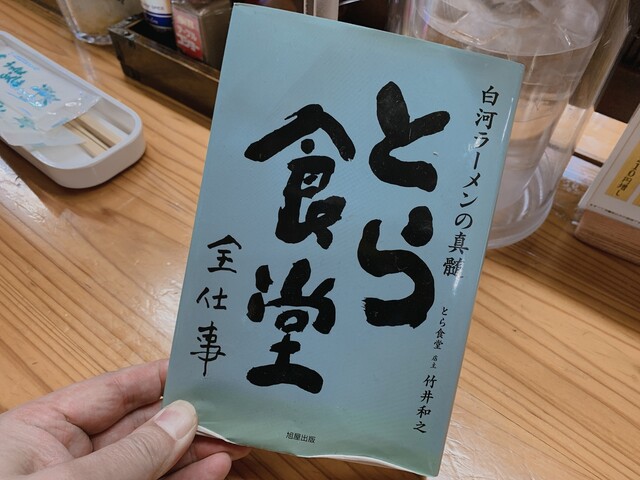 白河ラーメンの真髄
とら食堂 店主 竹井和之
とら
食堂
全仕事
旭屋出版